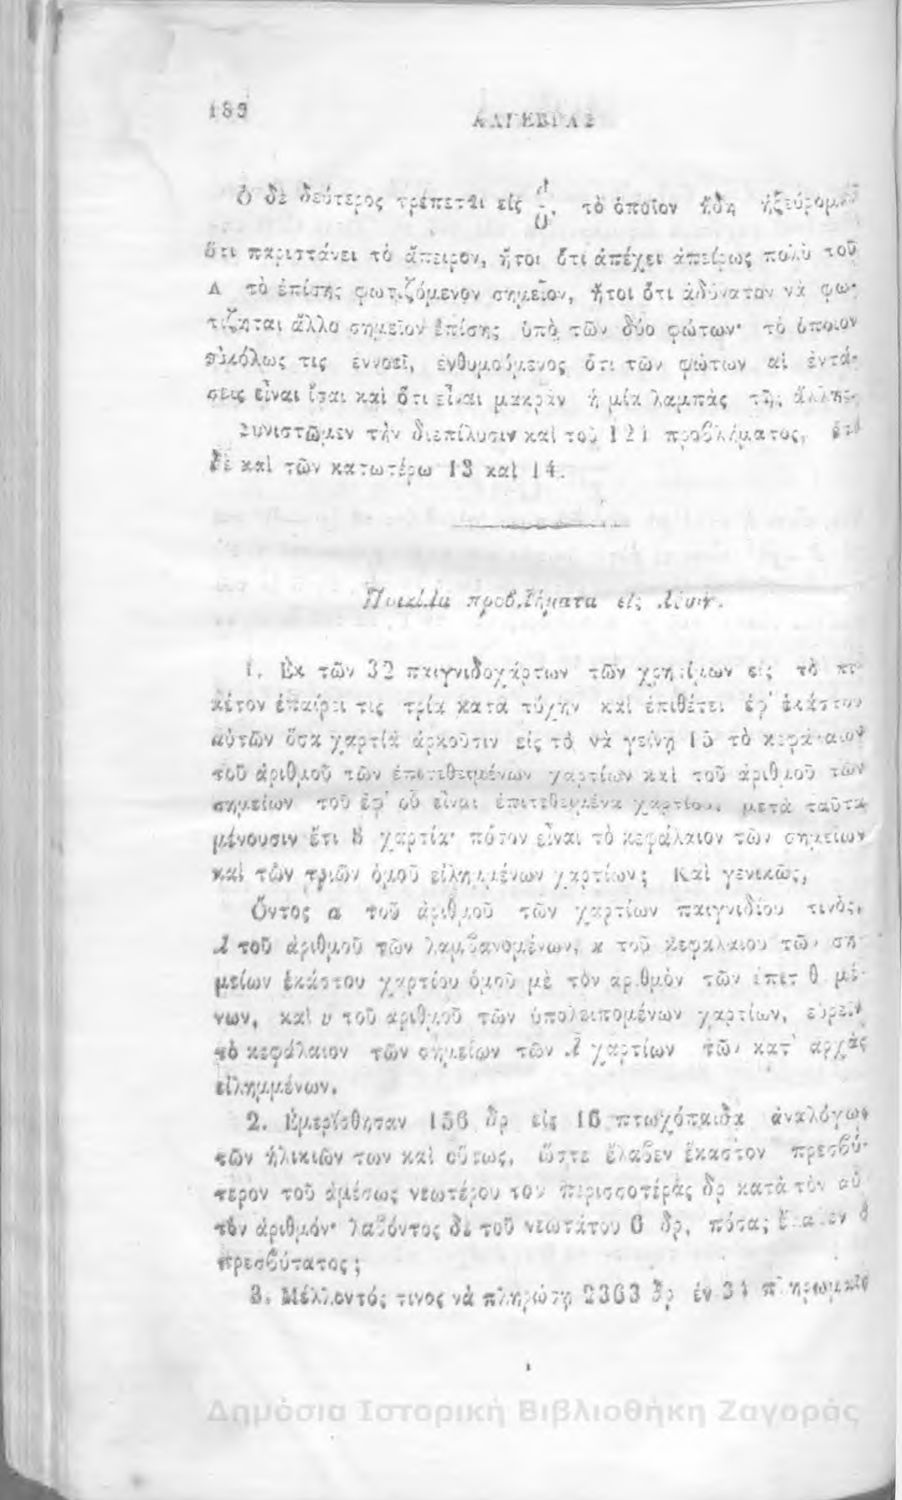 ΑΛΓΕΒΡΑΣ
Ὁ δὲ δεύτερος τρέπεται εἰς τὸ ὁποῖον ἤδη ἠξεύρομεν
ὅτι παριστάνει τὸ ἄπειρον, ἤτοι ὅτι ἀπέχει ἀπείρως πολὺ τοῦ
Α τὸ ἐπίσης φωτιζόμενον σημεῖον, ἤτοι ὅτι ἀδύνατον νὰ φω-
τίζηται ἄλλο σημεῖον ἐπίσης ὑπὸ τῶν δύο φώτων· τὸ ὁποῖον
εὐκόλως τις ἐννοεῖ, ἐνθυμούμενος ὅτι τῶν φώτων αἱ ἐντά-
σεις εἶναι ἴσαι καὶ ὅτι εἶναι μακρὰν ἡ μία λαμπὰς τῆς ἄλλης.
Συνιστῶμεν τὴν διεπίλυσιν καὶ τοῦ 121 προβλήματος, ἔτι
δὲ καὶ τῶν κατωτέρω 13 καὶ 14.
Ποικίλα προβλήματα εἰς λύσιν.
1. Ἐκ τῶν 32 παιγνιδοχάρτων τῶν χρησίμων εἰς τὸ πι-
κέτον ἐπαίρει τις τρία κατὰ τύχην καὶ ἐπιθέτει ἐφ' ἑκάστου
αὐτῶν ὅσα χαρτία ἀρκοῦσιν εἰς τὸ νὰ γείνῃ 15 τὸ κεφάλαιον
τοῦ ἀριθμοῦ τῶν ἐπιτεθειμένων χαρτίων καὶ τοῦ ἀριθμοῦ τῶν
σημείων τοῦ ἐφ' οὗ εἶναι ἐπιτεθειμένα χαρτίου, μετὰ ταῦτα
μένουσιν ἔτι 8 χαρτία· πόσον εἶναι τὸ κεφάλαιον τῶν σημείων
καὶ τῶν τριῶν ὁμοῦ εἰλημμένων χαρτίων; Καὶ γενικῶς,
Ὄντος α τοῦ ἀριθμοῦ τῶν χαρτίων παιγνιδίου τινός,
λ τοῦ ἀριθμοῦ τῶν λαμβανομένων, κ τοῦ κεφαλαίου τῶν ση-
μείων ἑκάστου χαρτίου ὁμοῦ μὲ τὸν ἀριθμὸν τῶν ἐπιτεθειμέ-
νων, καὶ υ τοῦ ἀριθμοῦ τῶν ὑπολειπομένων χαρτίων, εὑρεῖν
τὸ κεφάλαιον τῶν σημείων τῶν λ χαρτίων τῶν κατ' ἀρχὰς
εἰλημμένων.
2. Ἐμερίσθησαν 156 δρ εἰς 16 πτωχόπαιδα ἀναλόγως
τῶν ἡλικιῶν των καὶ οὕτως, ὥστε ἔλαβεν ἕκαστον πρεσβύ-
τερον τοῦ ἀμέσως νεωτέρου του περισσοτέρας δρ κατὰ τὸν αὐ-
τὸν ἀριθμόν· λαβόντος δὲ τοῦ νεωτάτου 6 δρ, πόσα; ἔλαβεν ὁ
πρεσβύτατος;
3. Μέλλοντός τινος νὰ πληρώσῃ 2363 δρ ἐν 34
Δημόσια Ιστορική Βιβλιοθήκη Ζαγοράς